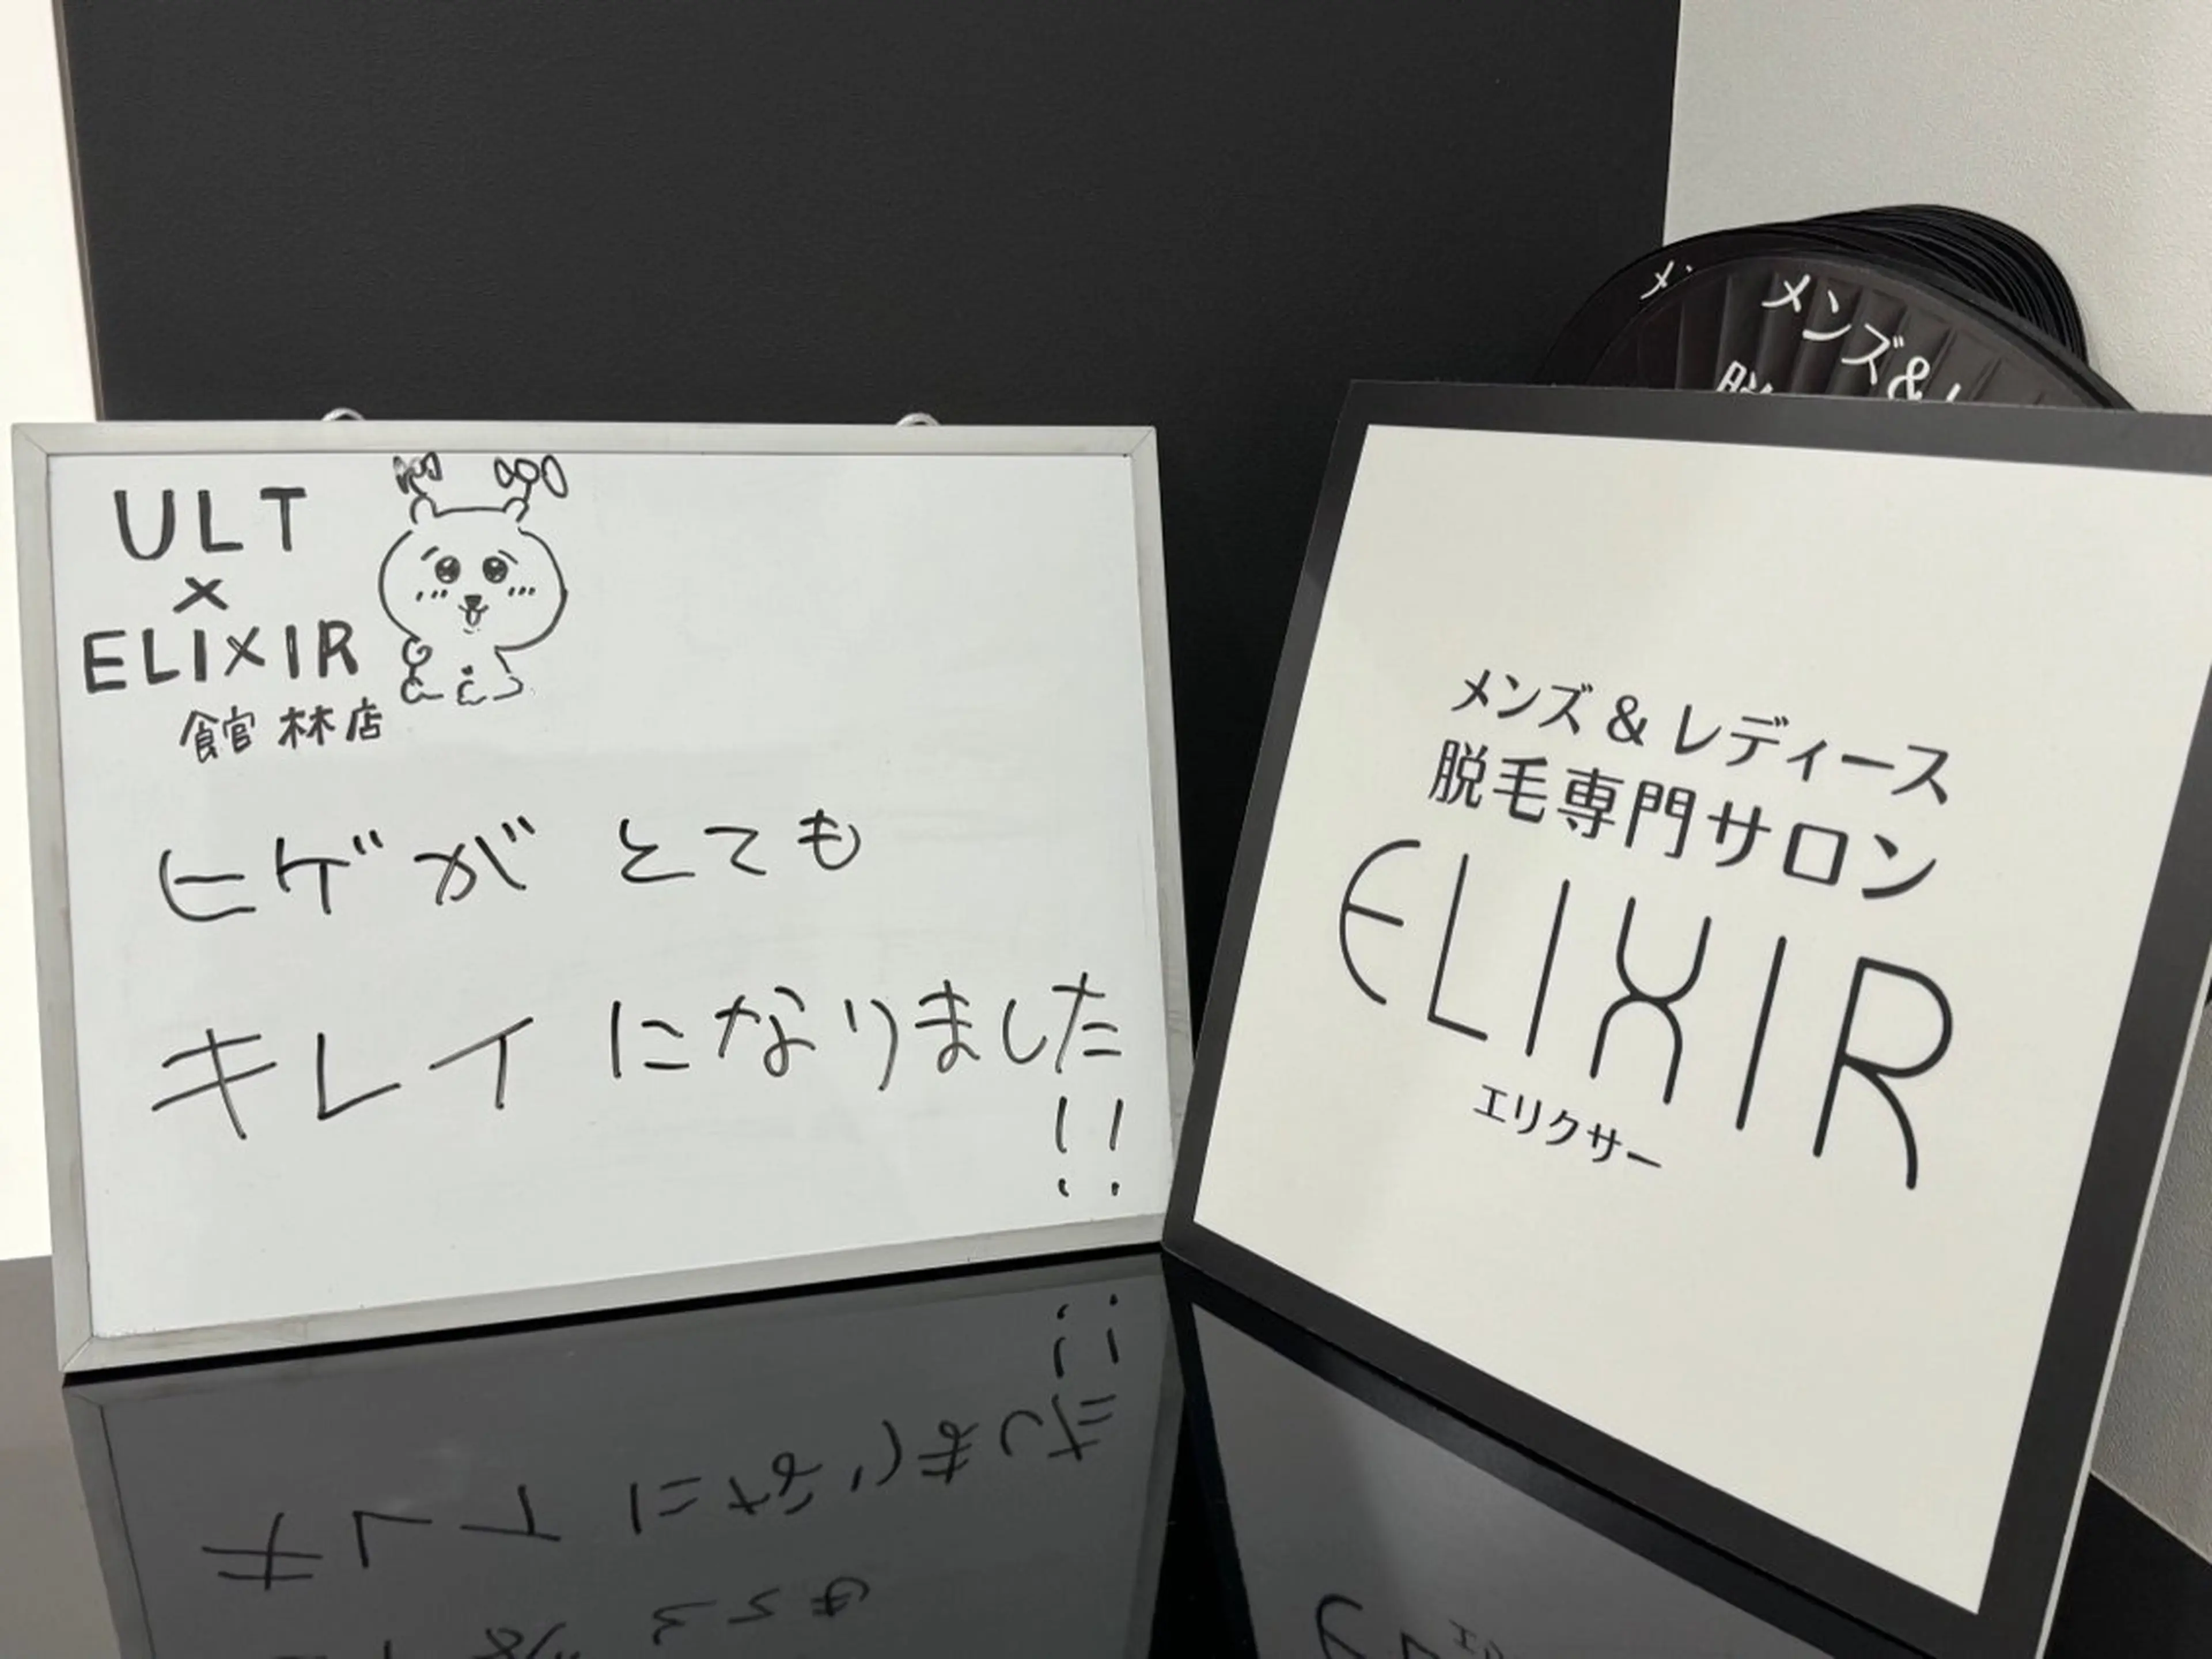 ULT
×
ELIXIR
館林店
ヒゲが とても
キレイ になりました
!!
メンズ&
メンズ&レディース
脱毛専門サロン
ELIXIR
エリクサー